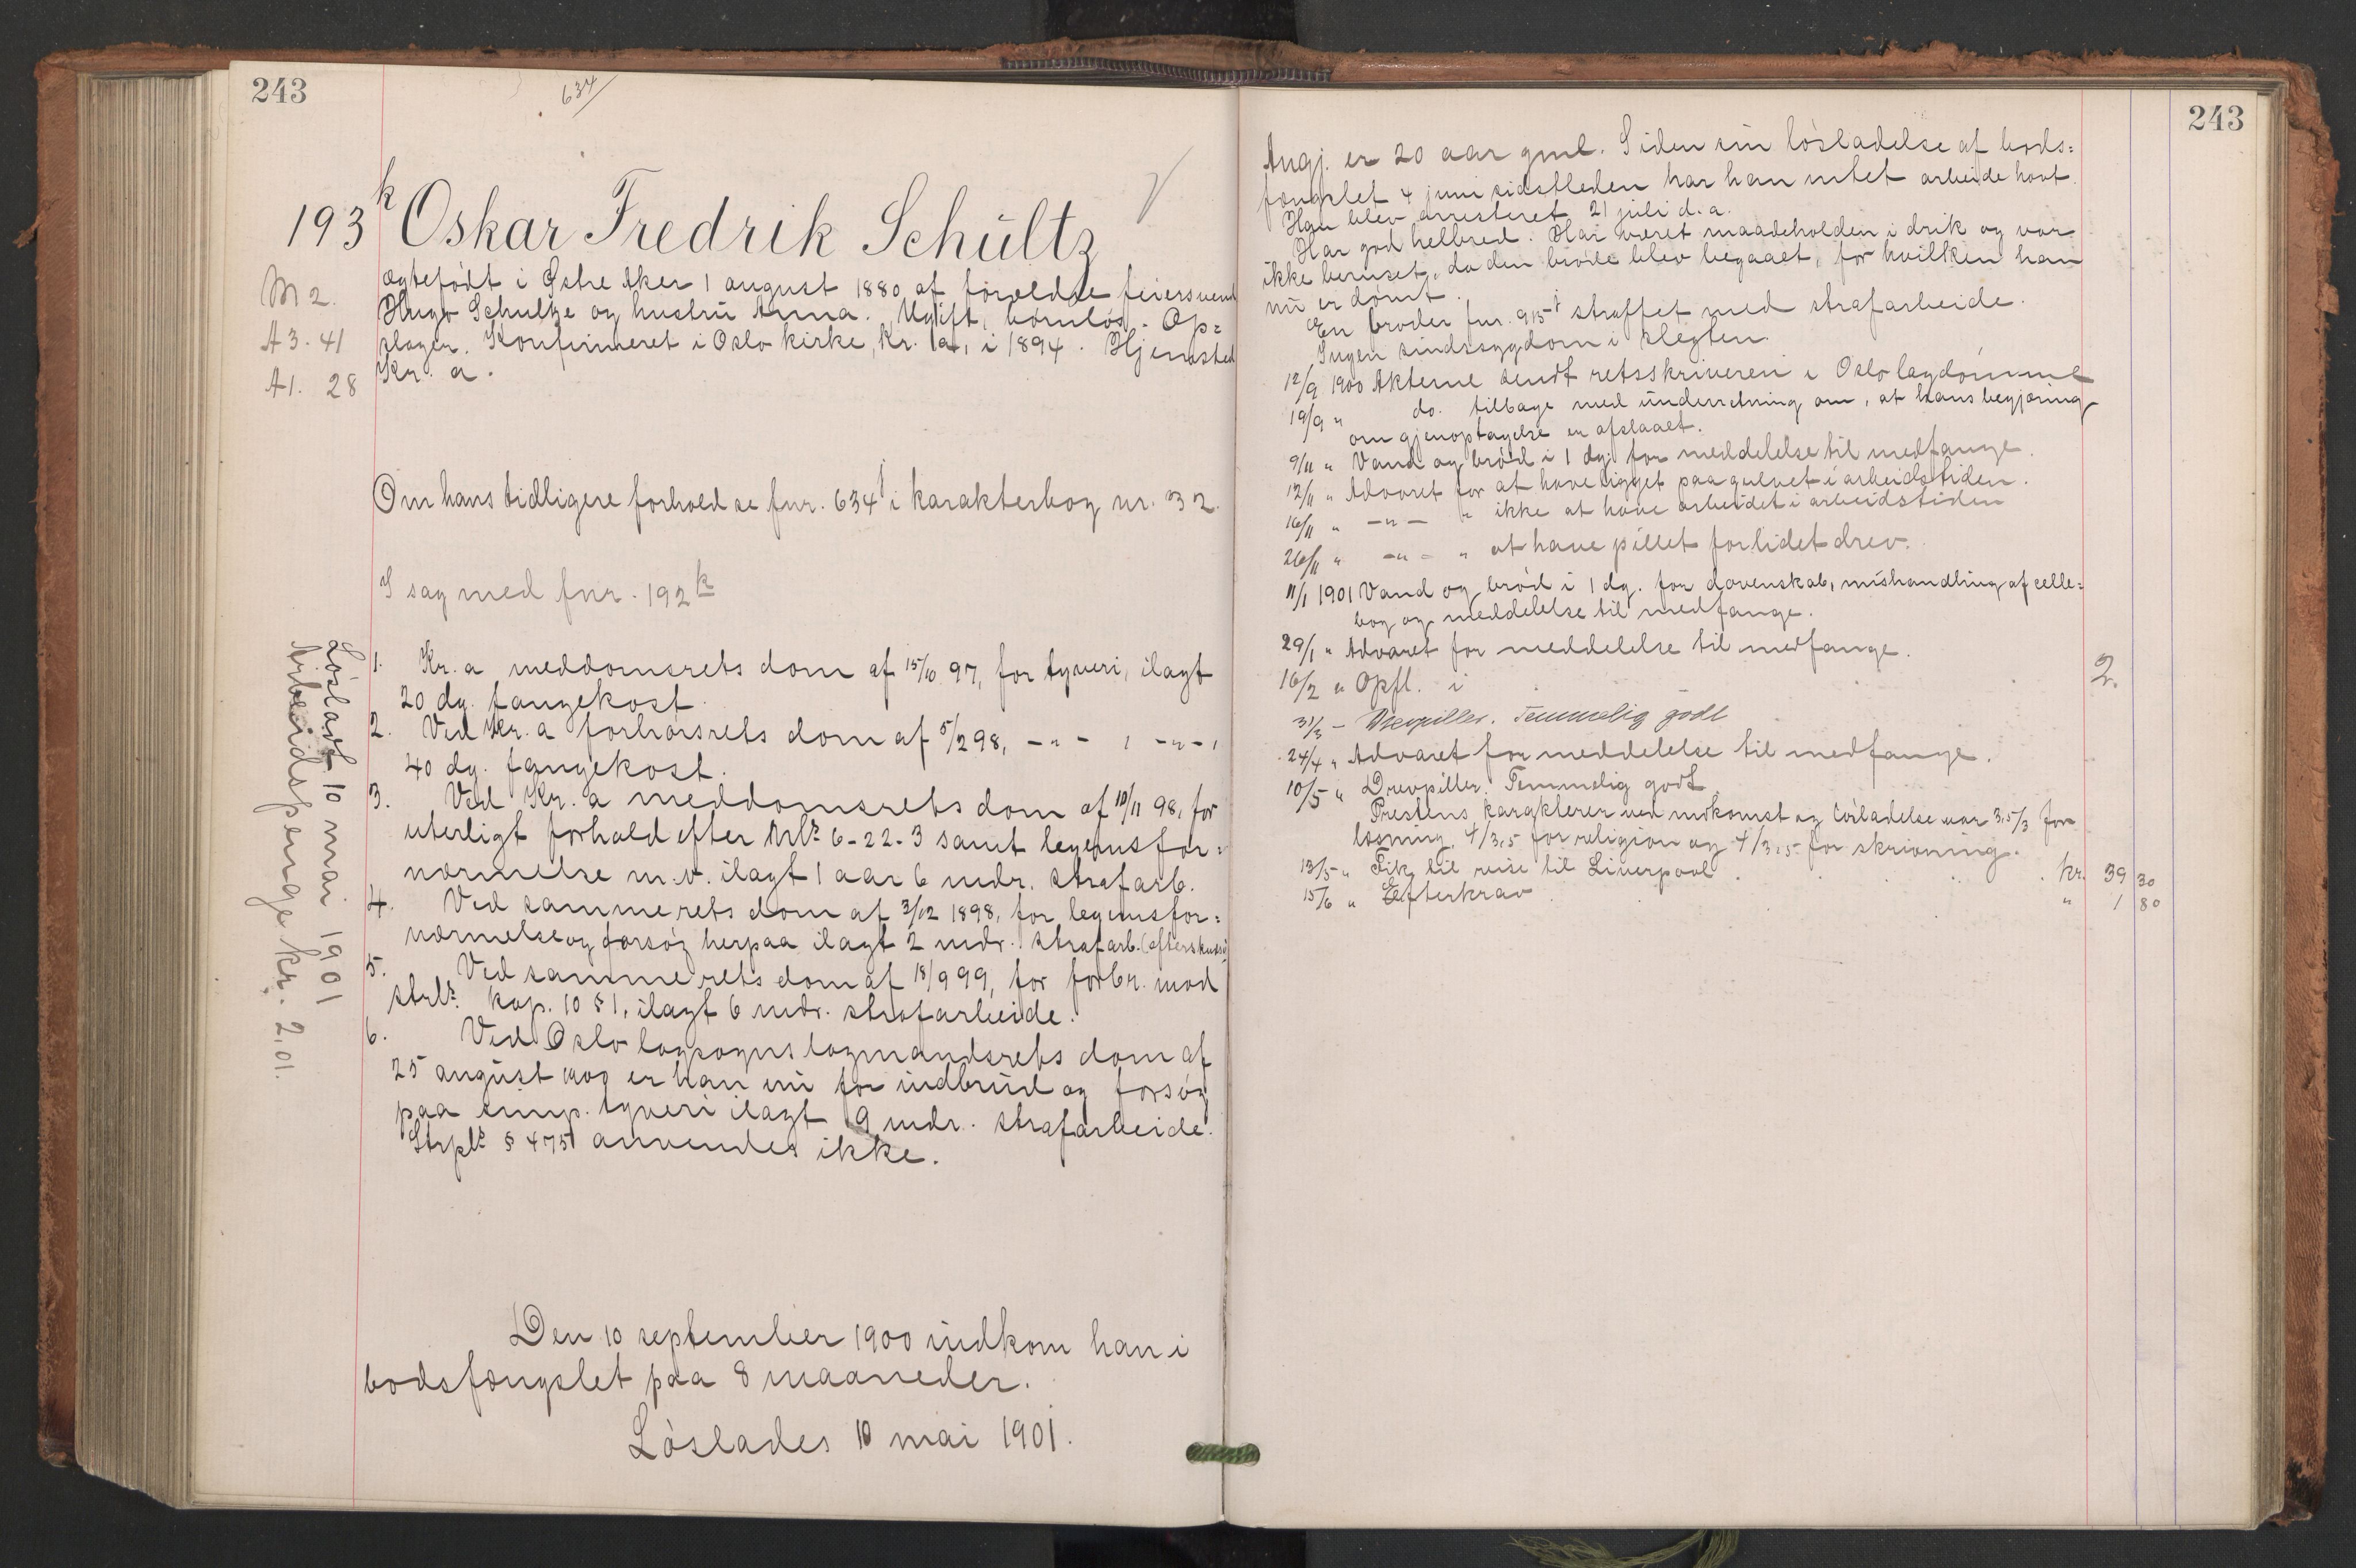 243
634
193 k Oskar Fredrik Schültz
M 2.
A 3. 41
A 1. 28
ægtefödt i Östre Aker 1 august 1880 af foreldre feiersvend
Hugo Schultze og hustru Anna. Ugift, barnlös. Op=
slager. Konfirmeret i Oslo kirke, Kr. a, i 1894. Hjemsted
Kr. a.
Om hans tidligere forhold se fnr. 634 j i karakterbog nr. 32.
I sag med fnr. 192 k
1. Kr. a meddomsrets dom af 15/10 97, for tyveri, ilagt
20 dg. fangekost.
2. Ved Kr. a forhörsrets dom af 5/2 98, - " - , - " - ,
40 dg. fangekost.
3. Ved Kr. a meddomsrets dom af 10/11 98, for
uterligt forhold efter 6-22-3 samt legemsfor=
nærmelse m.v. ilagt 1 aar 6 mdr. strafarb.
4. Ved samme rets dom af 3/12 1898, for legemsfor=
nærmelse og forsög herpaa ilagt 2 mdr. strafarb. (efterskuds)
5. Ved samme rets dom af 18/9 99, for forbr. mod
strls. kap. 10 § 1, ilagt 6 mdr. strafarbeide.
6. Ved Oslo lagsogns lagmandsrets dom af
25 august 1900 er han nu for indbrud og forsög
paa simp. tyveri ilagt 9 mdr. strafarbeide.
Strpls § 475 anvendes ikke.
Lösladt 10 mai 1901
Arbeidspenge kr. 2,01.
Den 10 september 1900 indkom han i
bodsfængslet paa 8 maaneder.
Löslades 10 mai 1901.
243
Angj. er 20 aar gml. Siden sin lösladelse af bods=
fængslet 4 juni sidstleden har han intet arbeide havt.
Han blev arresteret 21 juli d. a.
Har god helbred. Har været maadeholden i drik og var
ikke beruset, da den bröde blev begaaet, for hvilken han
nu er dömt.
En broder fnr. 915 i straffet med strafarbeide.
Ingen sindssygdom i slegten.
12/9 1900 Akterne sendt retsskriveren i Oslo lagdömme
19/9 " do. tilbage med underretning om, at hans begjæring
om gjenoptagelse er afslaaet.
9/11 " Vand og bröd i 1 dg. for meddelelse til medfange.
12/11 " Advaret for at have ligget paa gulvet i arbeidstiden.
16/11 " - " - " ikke at have arbeidet i arbeidstiden
26/11 " - " - " at have pillet for lidet drev.
11/1 1901 Vand og bröd i 1 dg. for dovenskab, mishandling af celle=
bog og meddelelse til medfange.
29/1 " Advaret for meddelelse til medfange.
16/2 " Opfl. i 2.
31/3 - Drevpiller. Temmelig godt
24/4 " Advaret for meddelelse til medfange.
10/5 " Drevpiller. Temmelig godt.
Prestens karakterer ved indkomst og lösladelse var 3,5/3 for
læsning, 4/3,5 for religion og 4/3,5 for skrivning.
13/5 " Fik til reise til Liverpool . . . . kr. 39 30
15/6 " Efterkrav . . . . " 1 80